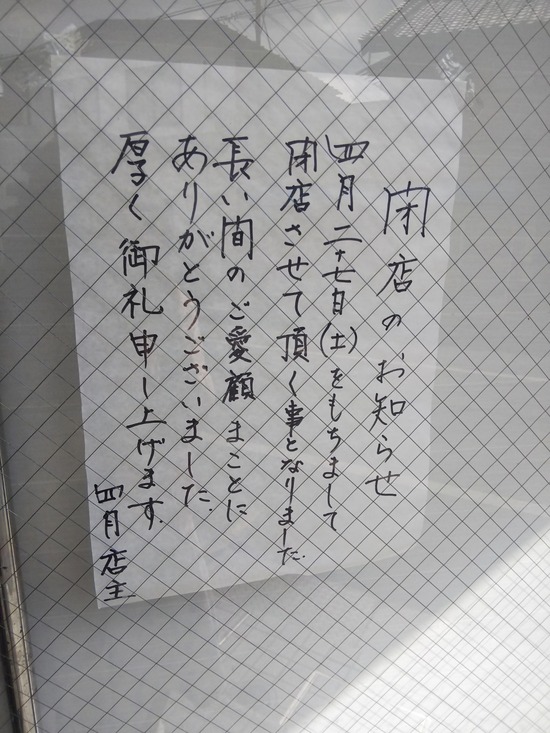 閉店のお知らせ
四月二十七日(土)をもちまして
閉店させて頂く事となりました。
長い間のご愛顧まことに
ありがとうございました。
厚く御礼申し上げます。
四月店主